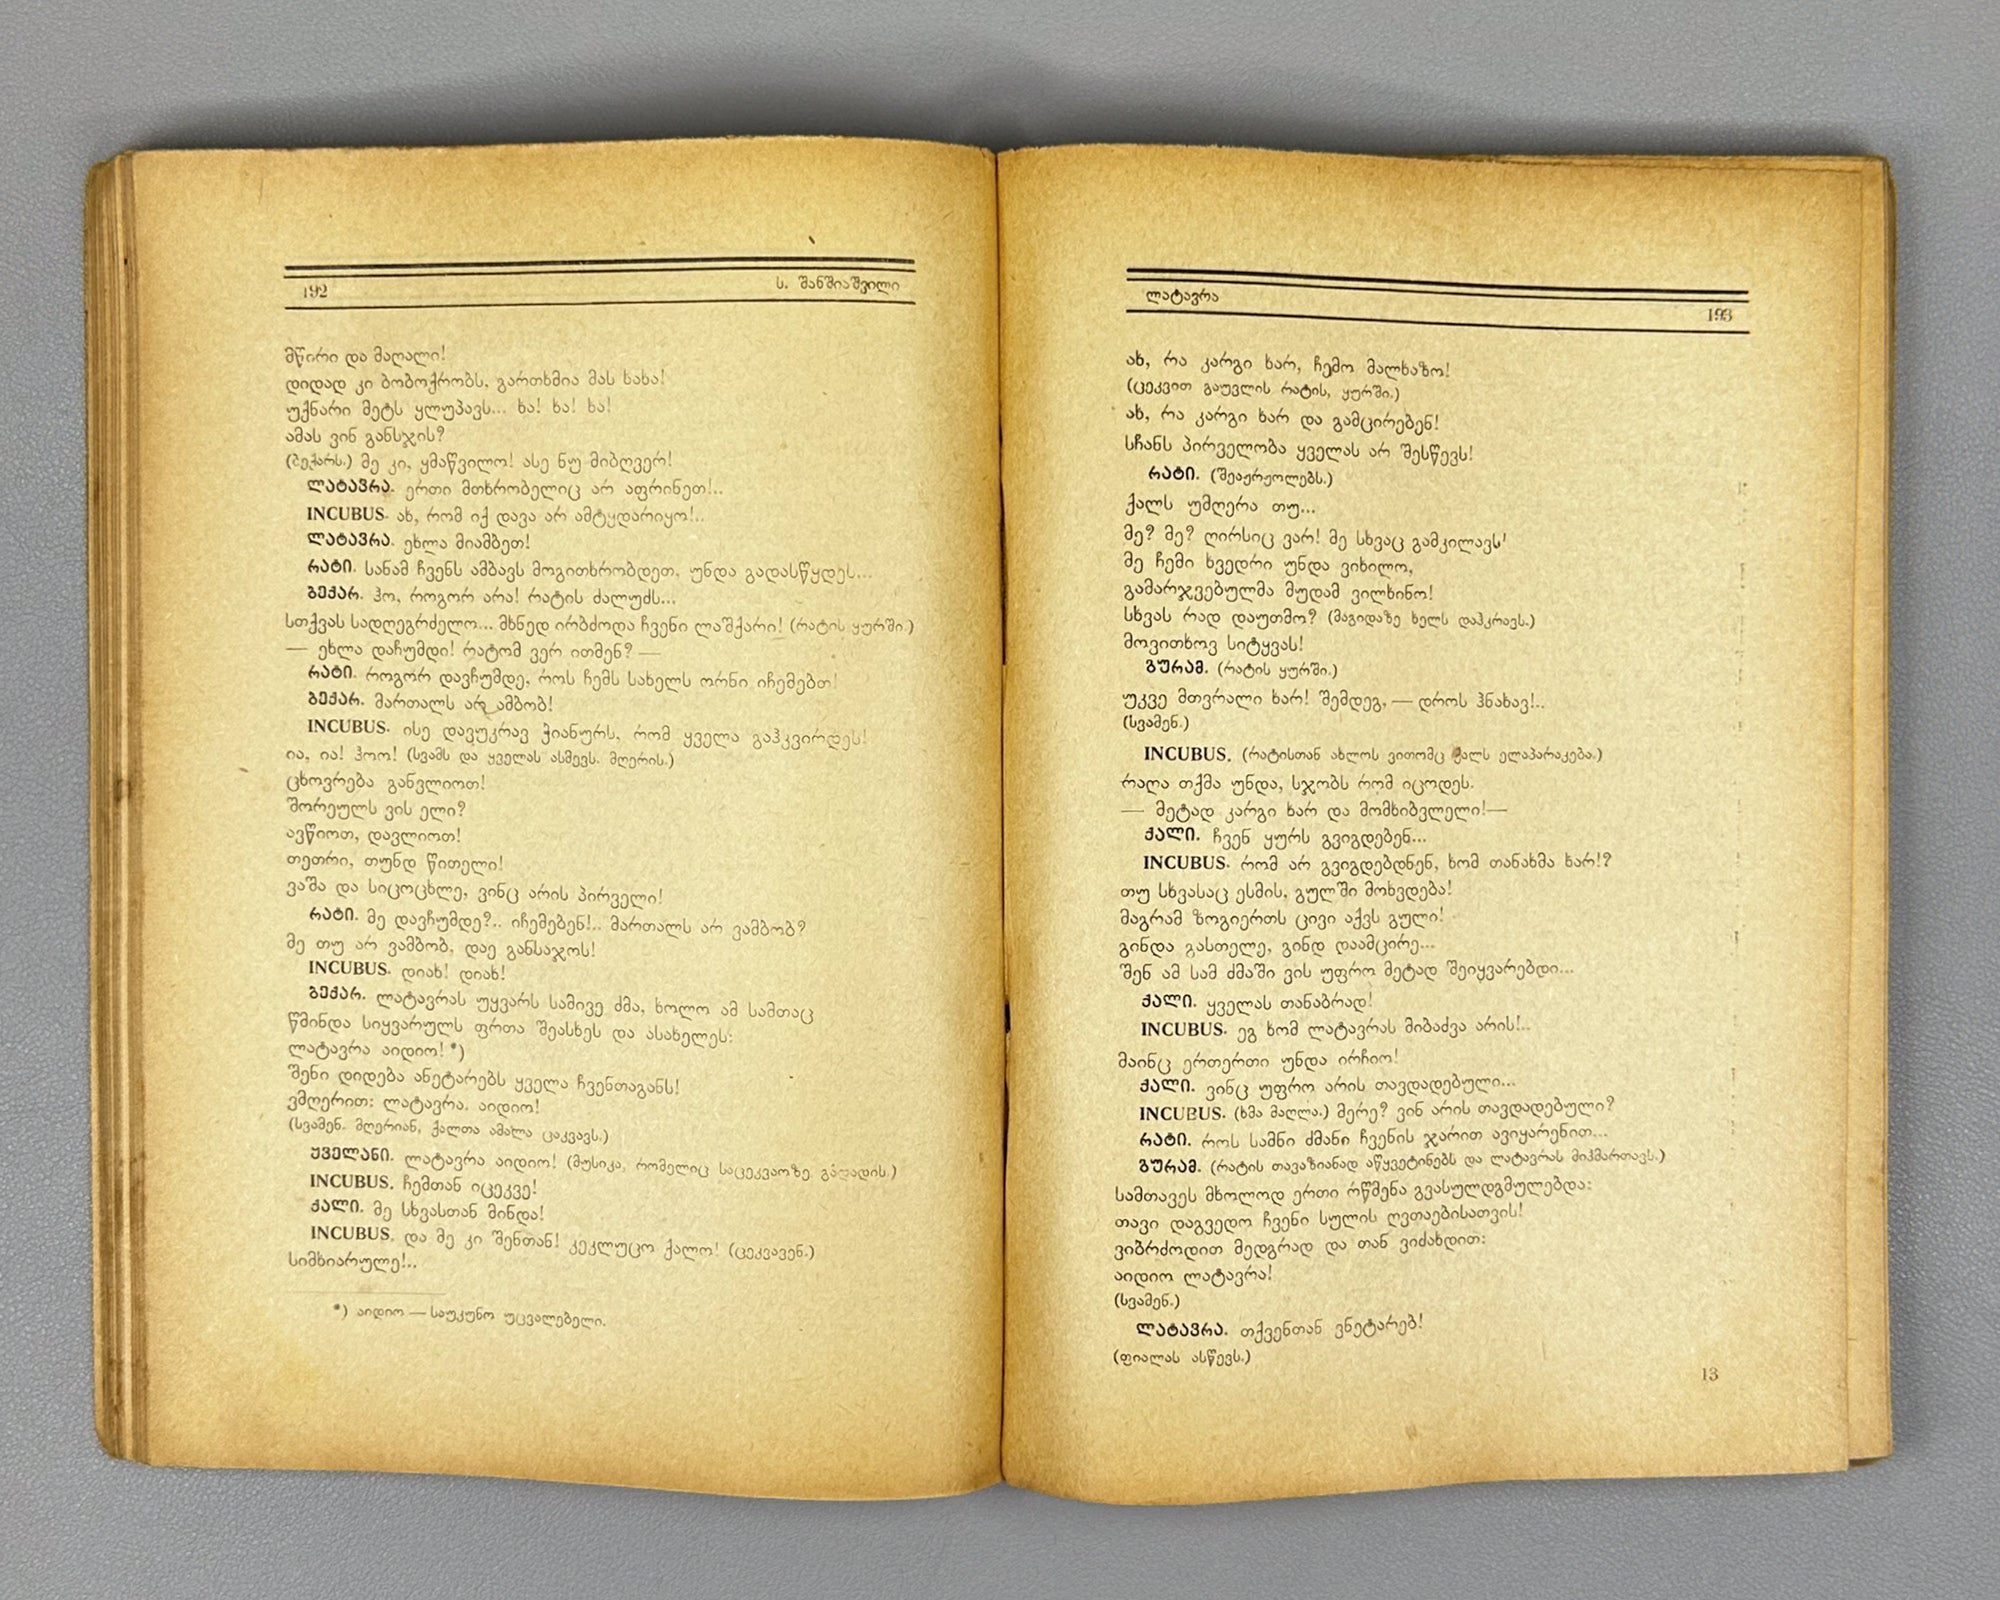 192
ს. შანშიაშვილი
მწირი და მაღალი!
დიდად კი ბობოქრობს, გართხმია მას სახა!
უქნარი მეტს ყლუპავს... ხა! ხა! ხა!
ამას ვინ განსჯის?
(ბექარს.) მე კი, ყმაწვილო! ასე ნუ მიბღვერ!
ლატავრა. ერთი მთხრობელიც არ აფრინეთ!..
INCUBUS. ახ, რომ იქ დავა არ ამტყდარიყო!..
ლატავრა. ეხლა მიამბეთ!
რატი. სანამ ჩვენს ამბავს მოგითხრობდეთ, უნდა გადასწყდეს...
ბექარ. ჰო, როგორ არა! რატის ძალუძს...
სთქვას სადღეგრძელო... მხნედ ირბძოდა ჩვენი ლაშქარი! (რატის ყურში.)
— ეხლა დაჩუმდი! რატომ ვერ ითმენ? —
რატი. როგორ დავჩუმდე, როს ჩემს სახელს ორნი იჩემებთ!
ბექარ. მართალს არ ამბობ!
INCUBUS. ისე დავუკრავ ჭიანურს, რომ ყველა გაჰკვირდეს!
ია, ია! ჰოო! (სვამს და ყველას ასმევს. მღერის.)
ცხოვრება განვლიოთ!
შორეულს ვის ელი?
ავწიოთ, დავლიოთ!
თეთრი, თუნდ წითელი!
ვაშა და სიცოცხლე, ვინც არის პირველი!
რატი. მე დავჩუმდე?.. იჩემებენ!.. მართალს არ ვამბობ?
მე თუ არ ვამბობ, დაე განსაჯოს!
INCUBUS. დიახ! დიახ!
ბექარ. ლატავრას უყვარს სამივე ძმა, ხოლო ამ სამთაც
წმინდა სიყვარულს ფრთა შეასხეს და ასახელეს:
ლატავრა აიდიო! *)
შენი დიდება ანეტარებს ყველა ჩვენთაგანს!
ვმღერით: ლატავრა. აიდიო!
(სვამენ. მღერიან, ქალთა ამალა ცაკვავს.)
ყველანი. ლატავრა აიდიო! (მუსიკა, რომელიც საცეკვაოზე გადადის.)
INCUBUS. ჩემთან იცეკვე!
ქალი. მე სხვასთან მინდა!
INCUBUS. და მე კი შენთან! კეკლუცო ქალო! (ცეკვავენ.)
სიმხიარულე!..
*) აიდიო — საუკუნო უცვალებელი.
ლატავრა
193
ახ, რა კარგი ხარ, ჩემო მალხაზო!
(ცეკვით გაუვლის რატის, ყურში.)
ახ, რა კარგი ხარ და გამცირებენ!
სჩანს პირველობა ყველას არ შესწევს!
რატი. (შეაჟრჟოლებს.)
ქალს უმღერა თუ...
მე? მე? ღირსიც ვარ! მე სხვაც გამკილავს!
მე ჩემი ხვედრი უნდა ვიხილო,
გამარჯვებულმა მუდამ ვილხინო!
სხვას რად დაუთმო? (მაგიდაზე ხელს დაჰკრავს.)
მოვითხოვ სიტყვას!
გურამ. (რატის ყურში.)
უკვე მთვრალი ხარ! შემდეგ, — დროს ჰნახავ!..
(სვამენ.)
INCUBUS. (რატისთან ახლოს ვითომც ქალს ელაპარაკება.)
რაღა თქმა უნდა, სჯობს რომ იცოდეს.
— მეტად კარგი ხარ და მომხიბვლელი!—
ქალი. ჩვენ ყურს გვიგდებენ...
INCUBUS. რომ არ გვიგდებდნენ, ხომ თანახმა ხარ!?
თუ სხვასაც ესმის, გულში მოხვდება!
მაგრამ ზოგიერთს ცივი აქვს გული!
გინდა გასთელე, გინდ დაამცირე...
შენ ამ სამ ძმაში ვის უფრო მეტად შეიყვარებდი...
ქალი. ყველას თანაბრად!
INCUBUS. ეგ ხომ ლატავრას მიბაძვა არის!..
მაინც ერთერთი უნდა ირჩიო!
ქალი. ვინც უფრო არის თავდადებული...
INCUBUS. (ხმა მაღლა.) მერე? ვინ არის თავდადებული?
რატი. როს სამნი ძმანი ჩვენის ჯარით ავიყარენით...
გურამ. (რატის თავაზიანად აწყვეტინებს და ლატავრას მიჰმართავს.)
სამთავეს მხოლოდ ერთი რწმენა გვასულდგმულებდა:
თავი დაგვედო ჩვენი სულის ღვთაებისათვის!
ვიბრძოდით მედგრად და თან ვიძახდით:
აიდიო ლატავრა!
(სვამენ.)
ლატავრა. თქვენთან ვნეტარებ!
(ფიალას ასწევს.)
13